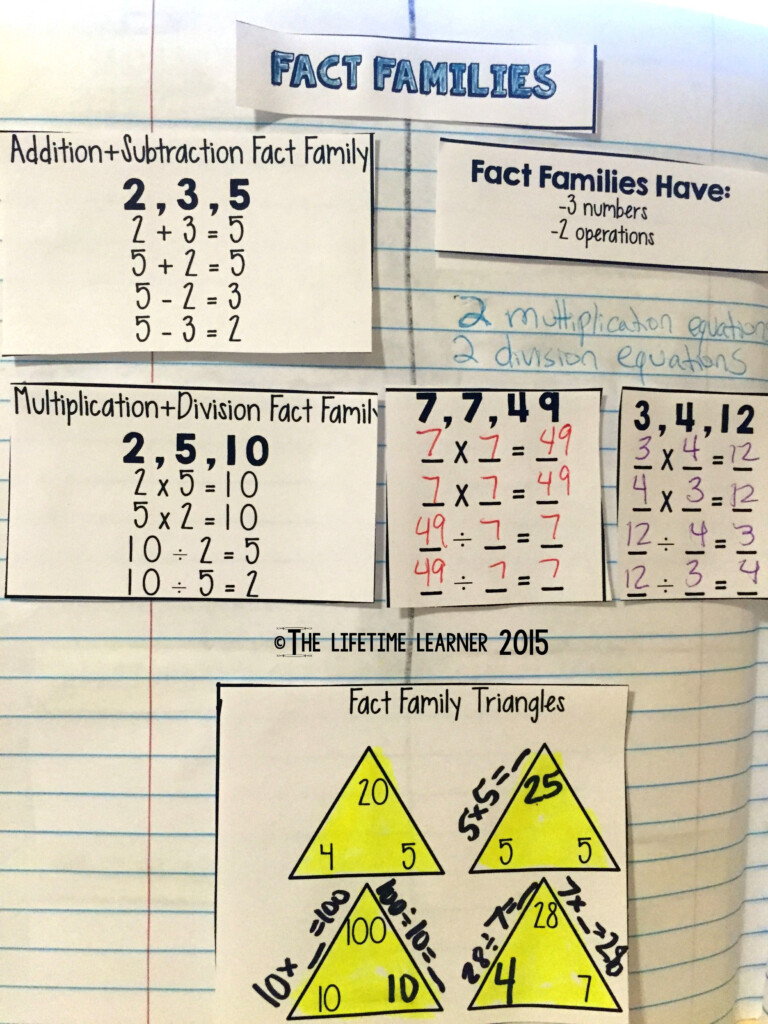 FACT FAMILIES
Addition+Subtraction Fact Family
2, 3, 5
2 + 3 = 5
5 + 2 = 5
5 - 2 = 3
5 - 3 = 2
Fact Families Have:
-3 numbers
-2 operations
2 multiplication equation
2 division equations
Multiplication+Division Fact Famil
2, 5, 10
2 x 5 = 10
5 x 2 = 10
10 ÷ 2 = 5
10 ÷ 5 = 2
7, 7, 49
7 x 7 = 49
7 x 7 = 49
49 ÷ 7 = 7
49 ÷ 7 = 7
3, 4, 12
3 x 4 = 12
4 x 3 = 12
12 ÷ 4 = 3
12 ÷ 3 = 4
©THE LIFETIME LEARNER 2015
Fact Family Triangles
20
4 5
5x5=_
25
5 5
10x_=100
100÷10=_
100
10 10
28÷7=_
7x_=28
28
4 7